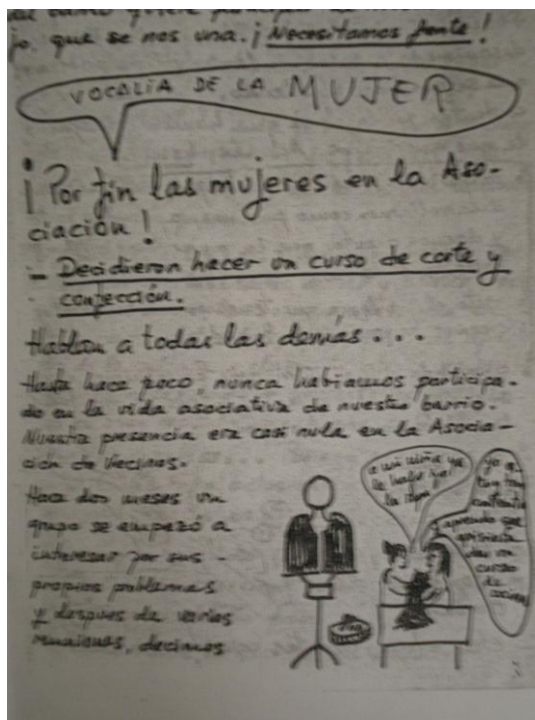 jo, que se nos una. ¡Necesitamos gente!
VOCALIA DE LA MUJER
¡Por fin las mujeres en la Aso-
ciación!
- Decidieron hacer un curso de corte y
confección.
Hablan a todas las demás...
Hasta hace poco, nunca habiamos participa-
do en la vida asociativa de nuestro barrio.
Nuestra presencia era casi nula en la Asocia-
ción de Vecinos.
Hace dos meses un
grupo se empezó a
interesar por sus -
propios problemas
y despues de varias
reuniones, decimos
a mi niña ya
le hago yo
la ropa
curso
de
cocina